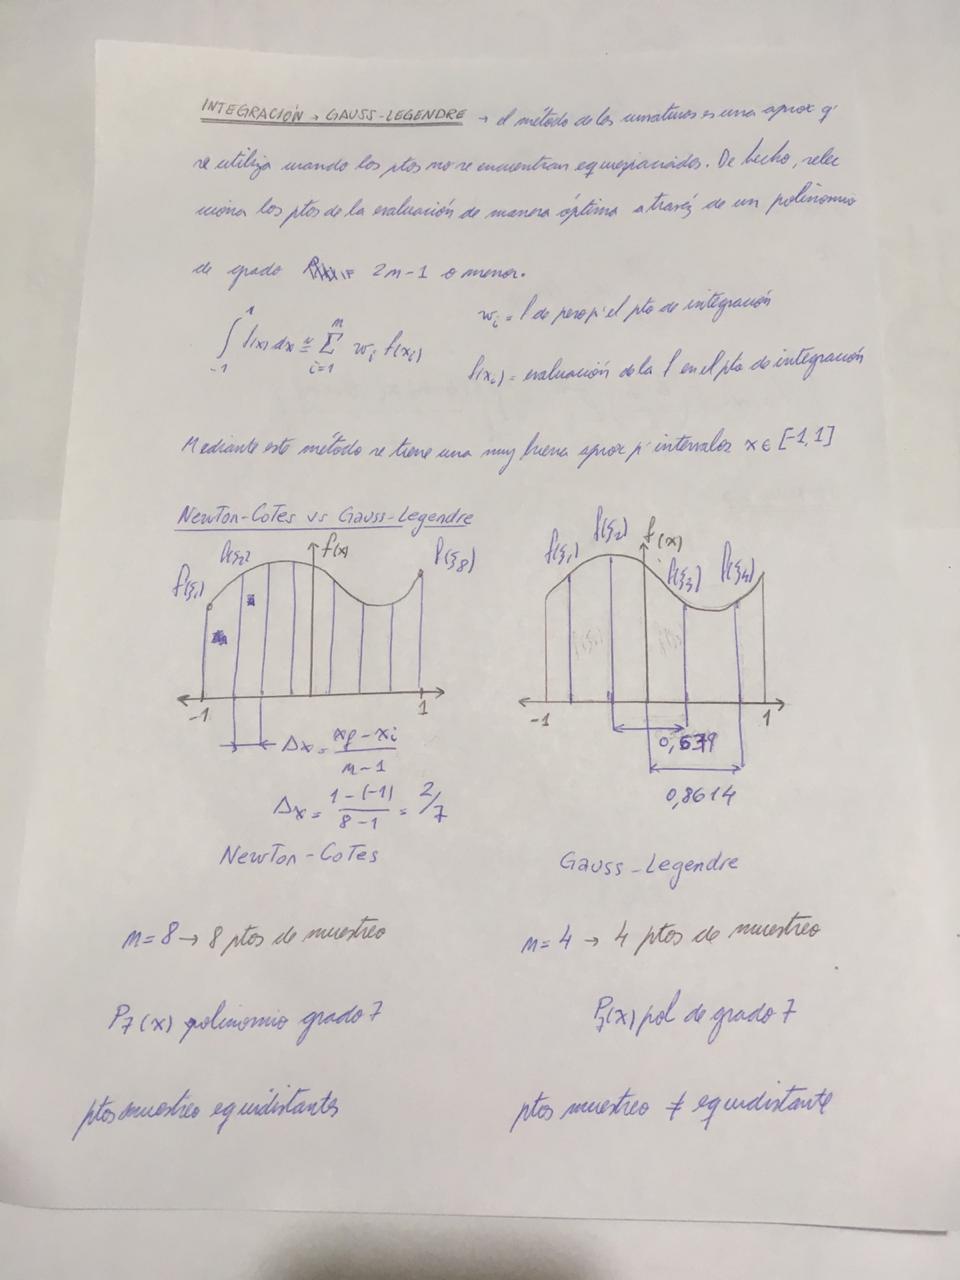 INTEGRACIÓN → GAUSS-LEGENDRE → el método de las curaturas es una aprox q'
se utiliza cuando los ptos no se encuentran equiespaciados. De hecho, selec
ciona los ptos de la evaluación de manera óptima a través de un polinomio
de grado 2n-1 o menor.
∫₋₁¹ f(x) dx ≅ Σᵢ₌₁ⁿ wᵢ f(xᵢ)
wᵢ = f de peso p' el pto de integración
f(xᵢ) = evaluación de la f en el pto de integración
Mediante este método se tiene una muy buena aprox p' intervalos x ∈ [-1,1]
Newton-Cotes vs Gauss-Legendre
f(ξ₁) f(ξ₂) f(x) f(ξ₈)
-1 1
Δx = (xf - xi)/(n-1)
Δx = (1-(-1))/(8-1) = 2/7
Newton-Cotes
n=8 → 8 ptos de muestreo
P₇(x) polinomio grado 7
ptos muestreo equidistantes
f(ξ₁) f(ξ₂) f(x) f(ξ₃) f(ξ₄)
-1 1
0,8614
Gauss-Legendre
n=4 → 4 ptos de muestreo
P₇(x) pol de grado 7
ptos muestreo ≠ equidistante